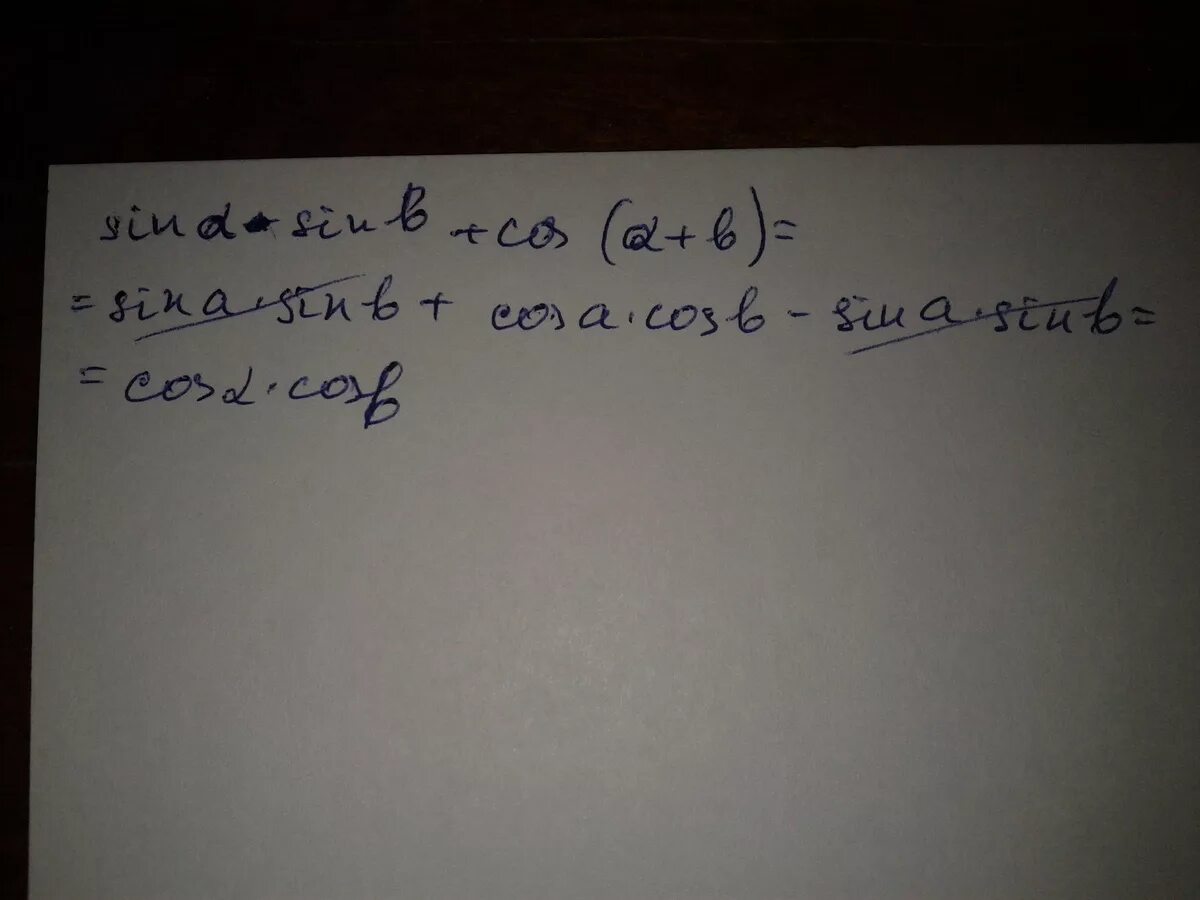 sin α · sin b + cos (α + b) =
= sin a · sin b + cos a · cos b - sin a · sin b =
= cos α · cos b